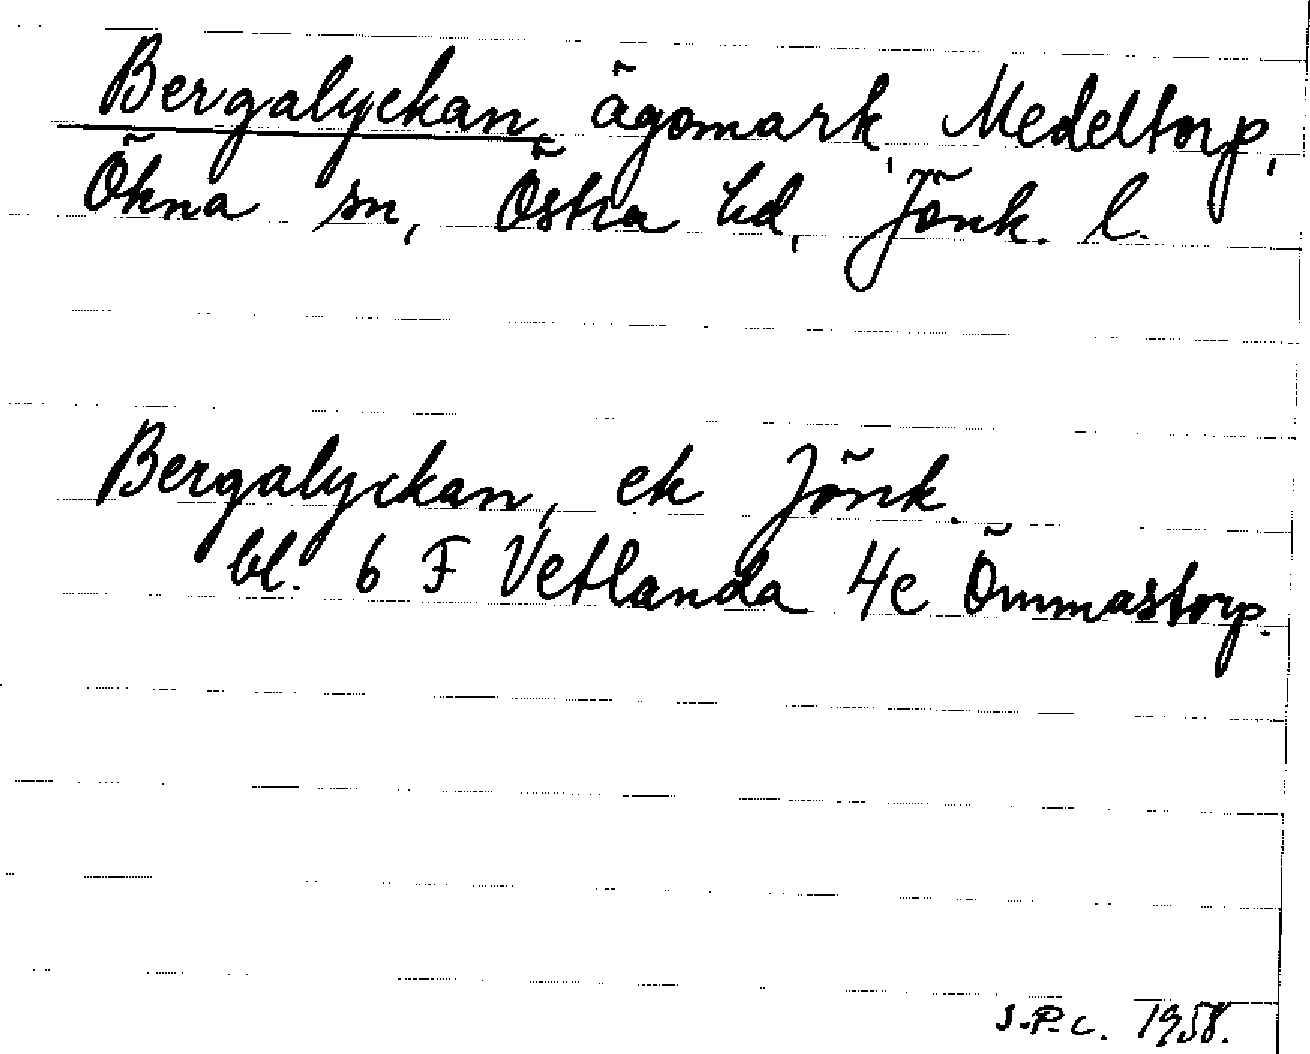 Bergalyckan, ägomark, Medeltorp,
Ökna sn, Östra hd, Jönk. l.
Bergalyckan, ek Jönk.
bl. 6 F Vetlanda 4e Ömmastorp.
S.P.c. 1958.